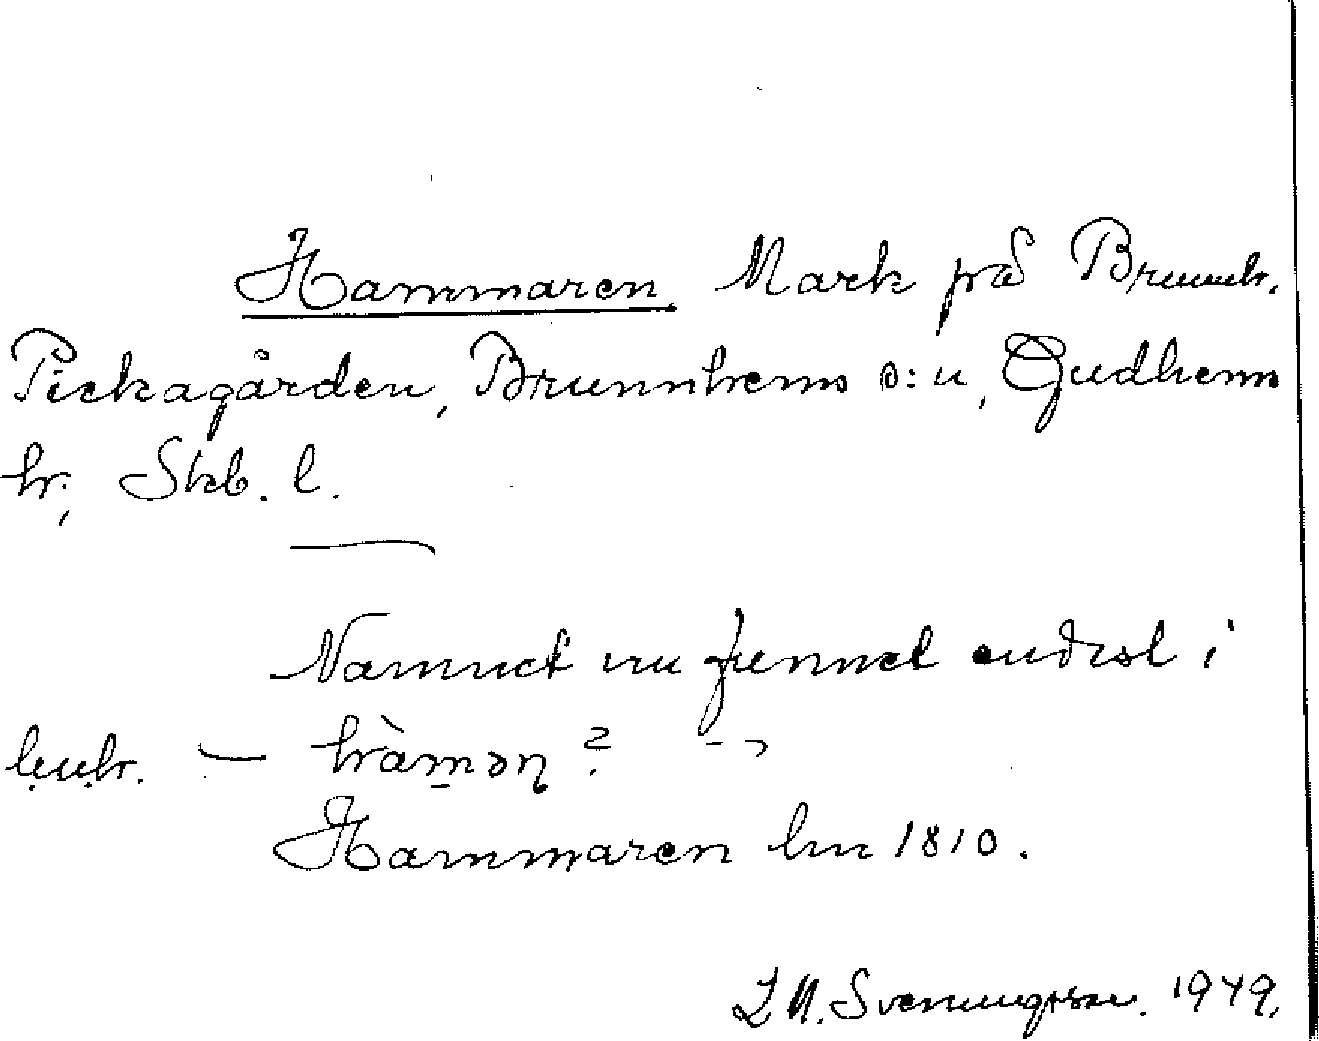 Hammaren. Mark på Brunnh.
Pickagården, Brunnhems s:n, Gudhems
hr, Skb. l.
Namnet nu funnet endast i
hàmən?
Hammaren Lm 1810.
Svenungsson. 1949.